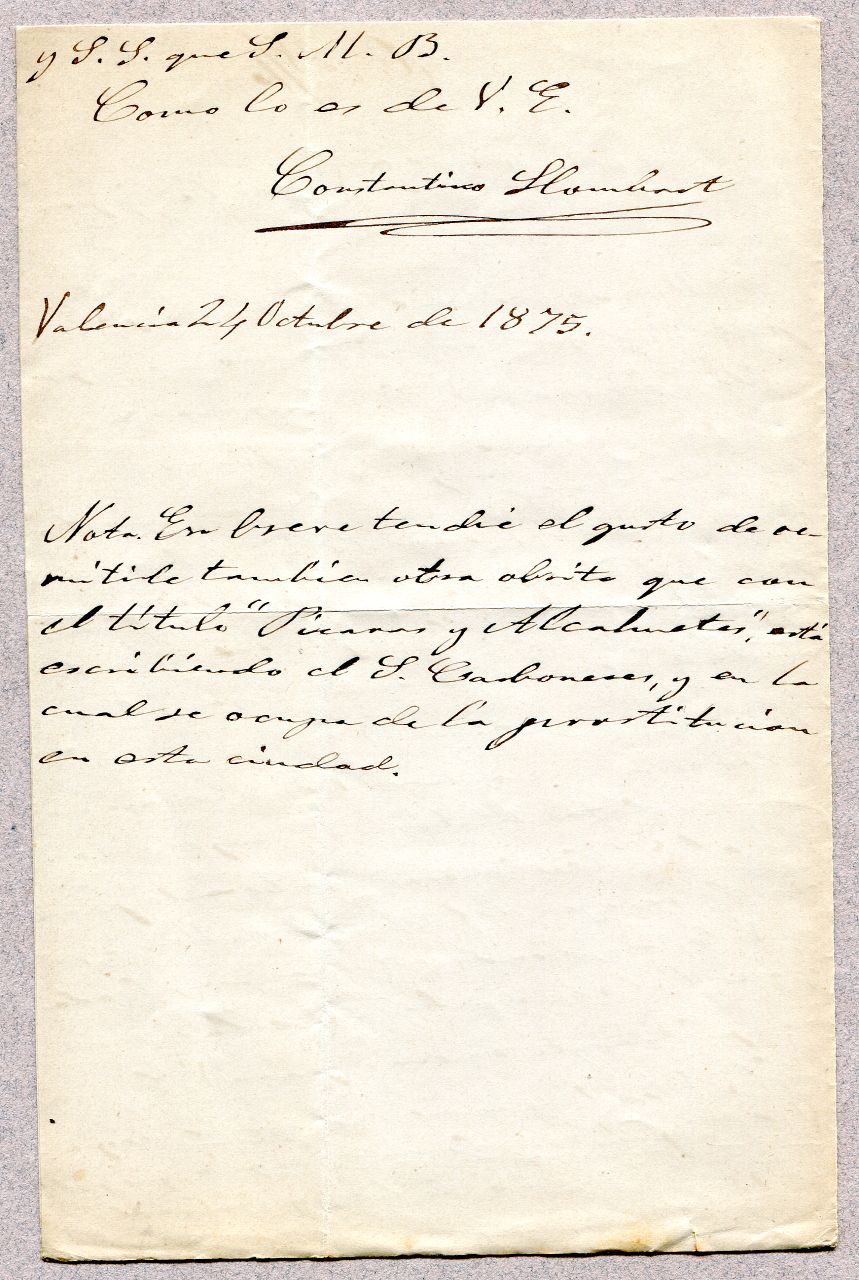 y S. S. que S. M. B.
Como lo es de V. E.
Constantino Llombart
Valencia 24 Octubre de 1875.
Nota. En breve tendré el gusto de re-
mitirle tambien otra obrita que con
el título "Picaras y Alcahuetes", está
escribiendo el S. Carboneres, y en la
cual se ocupa de la prostitucion
en esta ciudad.